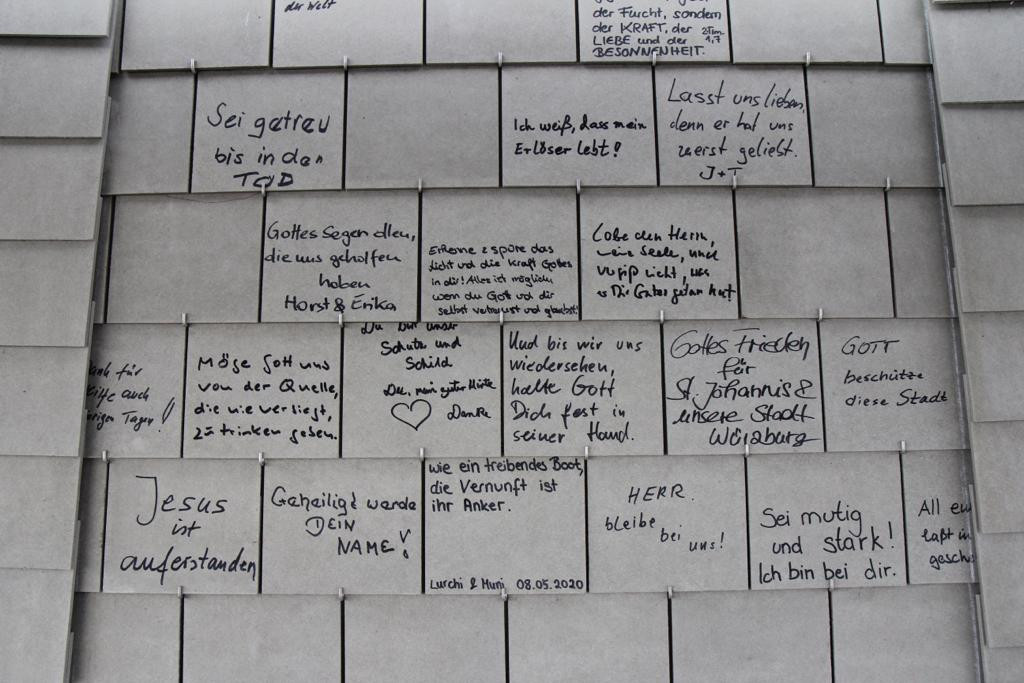 der Welt
der Furcht, sondern
der KRAFT, der 2Tim.
LIEBE und der 1,7
BESONNENHEIT.
Sei getreu
bis in den
TOD
Ich weiß, dass mein
Erlöser lebt!
Lasst uns lieben,
denn er hat uns
zuerst geliebt.
J+T
Gottes Segen allen,
die uns geholfen
haben
Horst & Erika
Erkenne & spüre das
Licht und die Kraft Gottes
in dir! Alles ist möglich
wenn du Gott und dir
selbst vertraust und glaubst!
Lobe den Herrn,
meine Seele, und
vergiß nicht, was
er Dir Gutes getan hat!
ank für
ilfe auch
rigen Tagen!
Möge Gott uns
von der Quelle,
die nie versiegt,
zu trinken geben.
Du bist unser
Schutz und
Schild
Du, mein guter Hirte
Danke
Und bis wir uns
wiedersehen,
halte Gott
Dich fest in
seiner Hand.
Gottes Frieden
für
St. Johannis &
unsere Stadt
Würzburg
GOTT
beschütze
diese Stadt
Jesus
ist
auferstanden
Geheiligt werde
DEIN
NAME!
wie ein treibendes Boot,
die Vernunft ist
ihr Anker.
Lurchi & Muni 08.05.2020
HERR
bleibe
bei
uns!
Sei mutig
und stark!
Ich bin bei dir.
All eu
laßt in
gesch